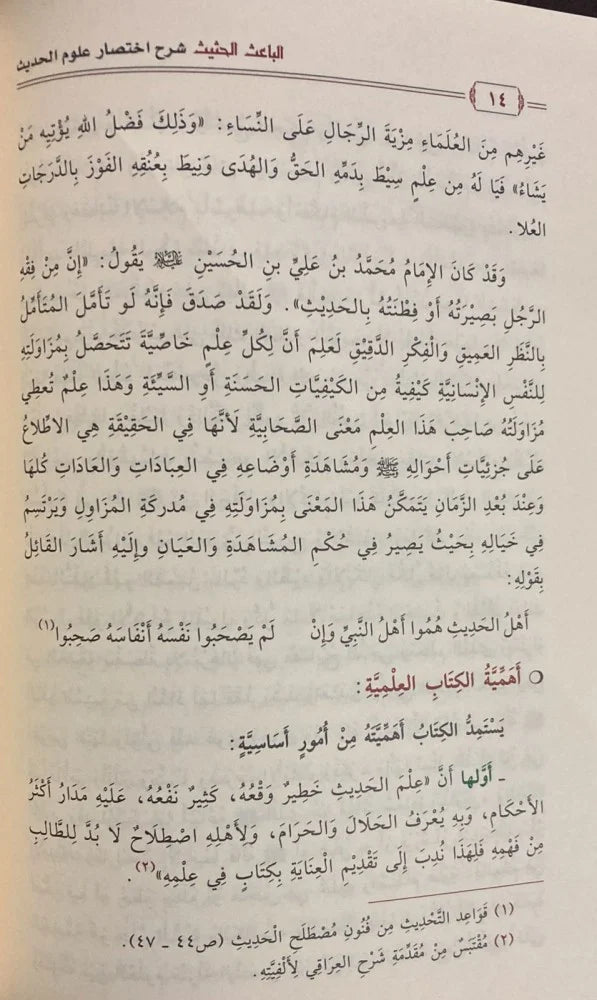 الباعث الحثيث شرح اختصار علوم الحديث
١٤
غَيْرِهِم مِنَ العُلَمَاءِ مِزْيَةَ الرِّجَالِ عَلَى النِّسَاءِ: «وَذَلِكَ فَضْلُ اللهِ يُؤْتِيهِ مَنْ
يَشَاءُ» فَيَا لَهُ مِن عِلْمٍ سِيْطَ بِدَمِّهِ الحَقُّ وَالهُدَى وَنِيطَ بِعُنُقِهِ الفَوْزَ بِالدَّرَجَاتِ
العُلا.
وَقَدْ كَانَ الإِمَامُ مُحَمَّدُ بنُ عَلِيِّ بنِ الحُسَيْنِ عليه السلام يَقُولُ: «إِنَّ مِنْ فِقْهِ
الرَّجُلِ بَصِيْرَتُهُ أَوْ فِطْنَتُهُ بِالحَدِيْثِ». وَلَقَدْ صَدَقَ فَإِنَّهُ لَو تَأَمَّلَ المُتَأَمِّلُ
بِالنَّظَرِ العَمِيقِ وَالْفِكْرِ الدَّقِيْقِ لَعَلِمَ أَنَّ لِكُلِّ عِلْمٍ خَاصِّيَّةً تَتَحَصَّلُ بِمُزَاوَلَتِهِ
لِلنَّفْسِ الإِنْسَانِيَّةِ كَيْفِيَةٌ مِن الكَيْفِيَّاتِ الحَسَنَةِ أَوِ السَّيِّئَةِ وَهَذَا عِلْمٌ تُعطِي
مُزَاوَلَتُهُ صَاحِبَ هَذَا العِلْمِ مَعْنَى الصَّحَابِيَّةِ لأَنَّهَا فِي الحَقِيْقَةِ هِيَ الاطِّلاعُ
عَلَى جُزئِيَّاتِ أَحْوَالِهِ ﷺ وَمُشَاهَدَةِ أَوْضَاعِهِ فِي العِبَادَاتِ وَالعَادَاتِ كُلهَا
وَعِنْدَ بُعْدِ الزَّمَانِ يَتَمَكَّنُ هَذَا المَعْنَى بِمُزَاوَلَتِهِ فِي مُدركَةِ المُزَاوِلِ وَيَرْتَسِمُ
فِي خَيَالِهِ بِحَيْثُ يَصِيرُ فِي حُكْمِ المُشَاهَدَةِ وَالعَيَانِ وإِلَيْهِ أَشَارَ القَائِلُ
بِقَوْلِهِ:
أَهْلُ الحَدِيثِ هُمُوا أَهْلُ النَّبِيِّ وَإِنْ لَمْ يَصْحَبُوا نَفْسَهُ أَنْفَاسَهُ صَحِبُوا(١)
○ أَهَمِّيَّةُ الكِتَابِ العِلْمِيَّةِ:
يَسْتَمِدُّ الكِتَابُ أَهَمِّيَّتَهُ مِنْ أُمُورٍ أَسَاسِيَّةٍ:
ـ أَوَّلها أَنَّ «عِلْمَ الحَدِيثِ خَطِيرٌ وَقْعُهُ، كَثِيرٌ نَفْعُهُ، عَلَيْهِ مَدَارُ أَكْثَرُ
الأَحْكَامِ، وَبِهِ يُعْرَفُ الحَلَالَ وَالحَرَامَ، وَلِأَهْلِهِ اصْطِلَاحٌ لَا بُدَّ لِلطَّالِبِ
مِنْ فَهْمِهِ فَلِهَذَا نُدِبَ إِلَى تَقْدِيْمِ العِنَايَةِ بِكِتَابٍ فِي عِلْمِهِ»(٢).
(١) قَوَاعِد التَّحْدِيْثِ مِن فُنُونِ مُصْطَلَحِ الْحَدِيْثِ (ص٤٤ ـ ٤٧).
(٢) مُقْتَبَسٌ مِنْ مُقَدِّمَةِ شَرْحِ العِرَاقِي لِأَلْفِيَّتِهِ.